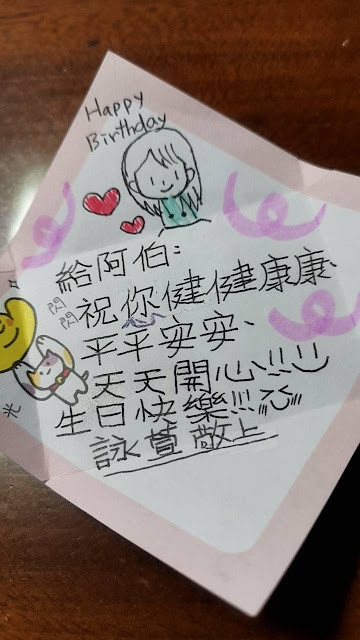 Happy
Birthday
給阿伯:
祝你健健康康、
平平安安、
天天開心!!!
生日快樂!!!
詠萱 敬上
閃
閃
光